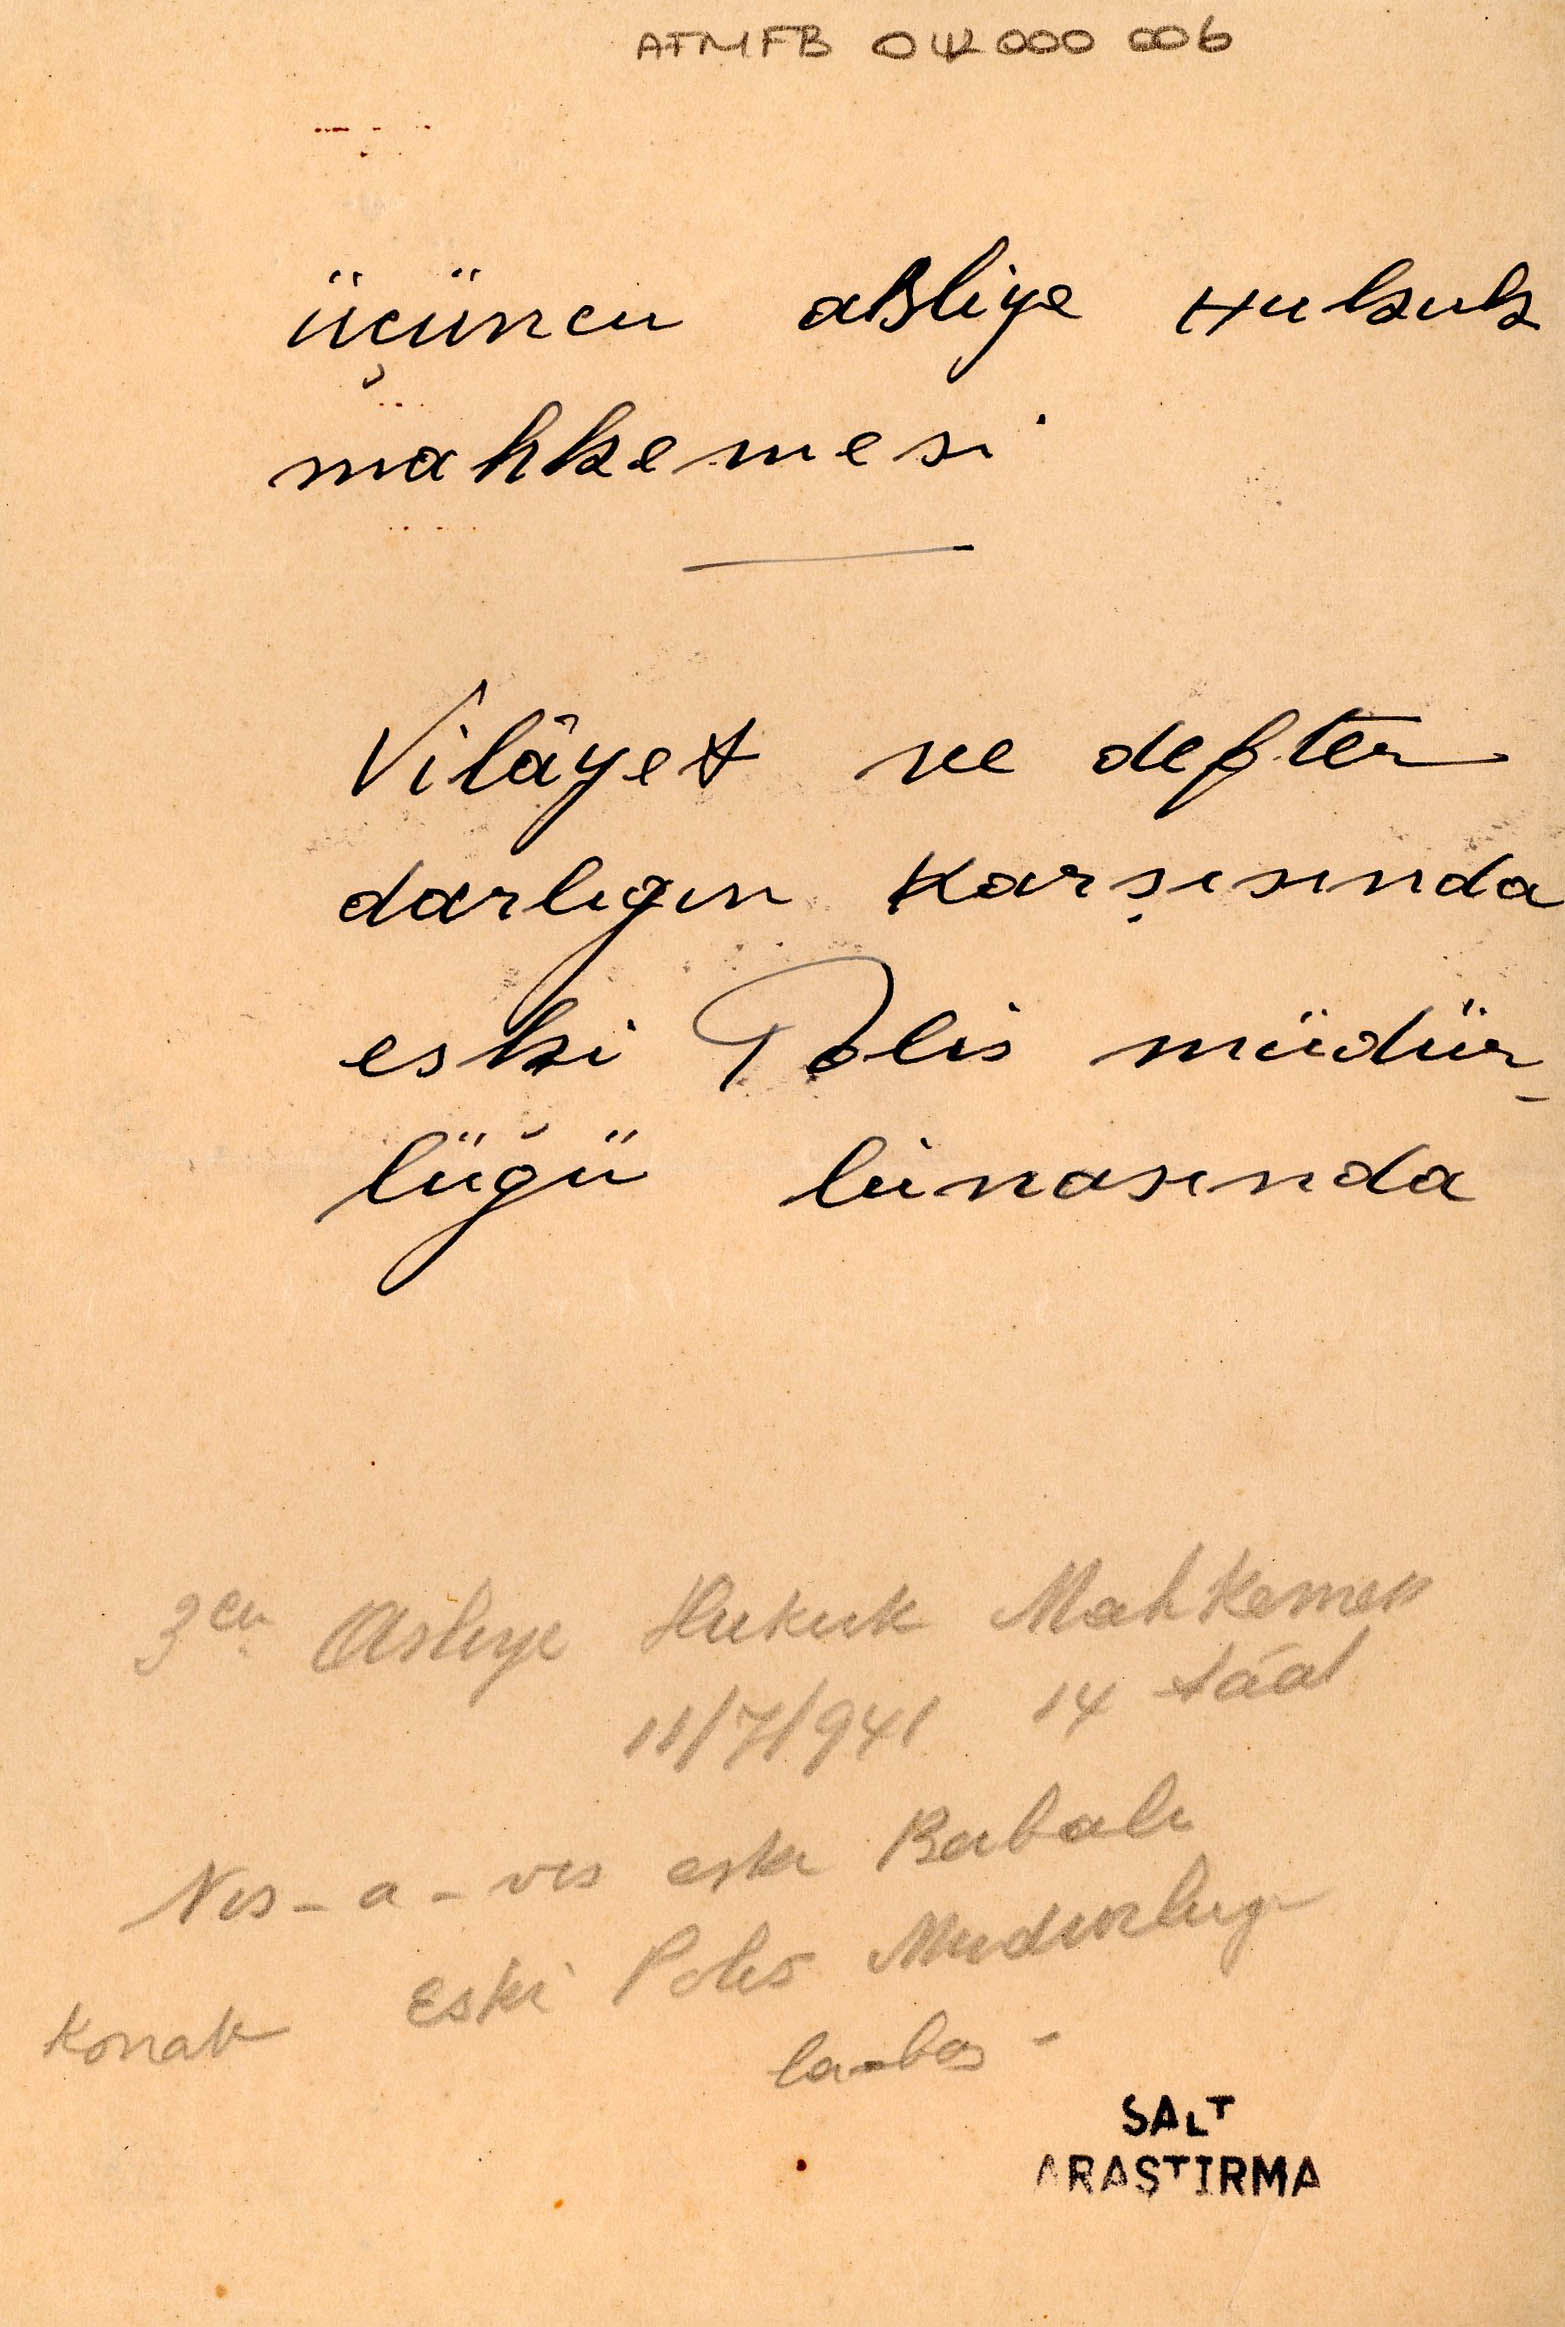 ATMFB 042000 006
üçüncü asliye Hukuk
mahkemesi
Vilâyet ve defter
darlıgın karşısında
eski Polis müdür-
lüğü binasında
3cu Asliye Hukuk Mahkemesi
11/7/941 14 sáat
Vis-a-vis eski Babali
Eski Polis Mudurlug
Konak
SALT
ARAŞTIRMA